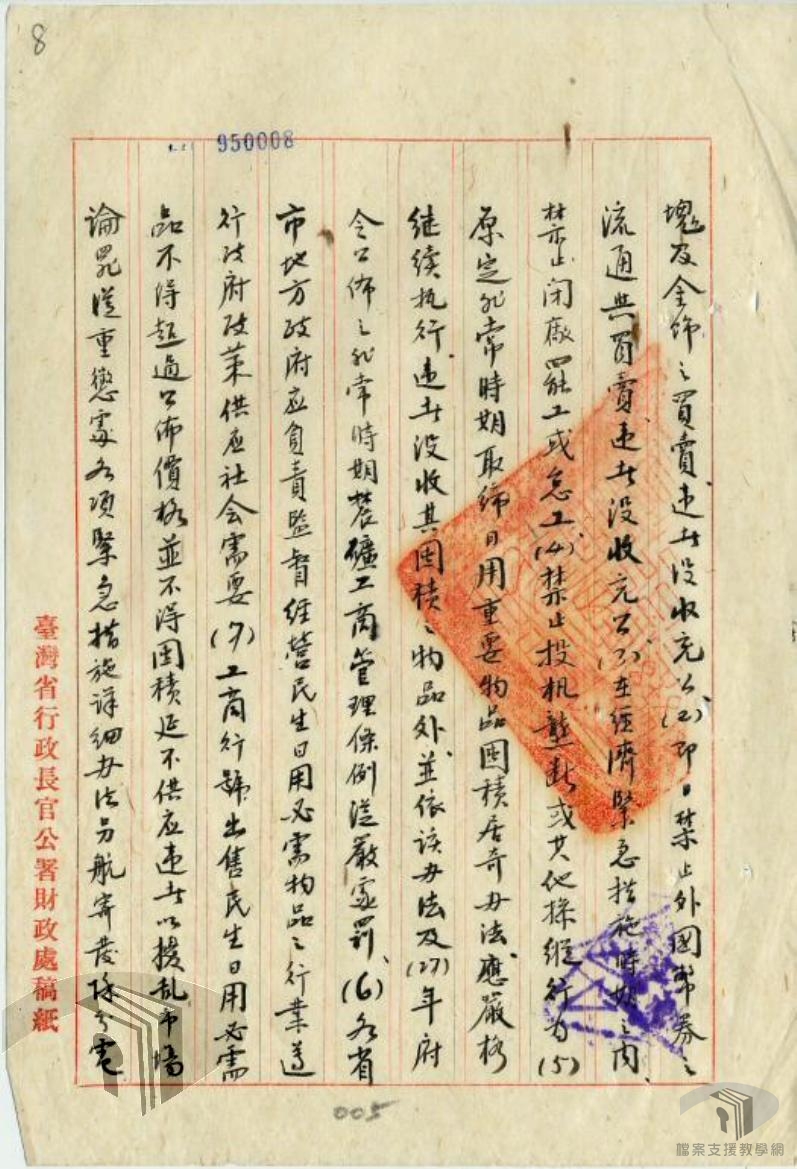 8
950008
塊及金飾之買賣違者沒收充公(2)即日禁止外國幣券之
流通與買賣違者沒收充公(3)在經濟緊急措施時期之內
禁止閉廠罷工或怠工(4)禁止投机壟断或其他操縱行为(5)
原定非常時期取締日用重要物品囤積居奇办法應嚴格
继续执行違者没收其囤積之物品外並依该办法及(27)年府
令公佈之非常時期農礦工商管理條例從嚴處罰(6)各省
市地方政府应負責監督经營民生日用必需物品之行業遵
行政府政策供应社会需要(7)工商行號出售民生日用必需
品不得超過公佈價格並不得囤積延不供应違者以擾乱市場
論罪從重懲處各項緊急措施详细办法另航寄發除分電
臺灣省行政長官公署財政處稿紙
005
檔案支援教學網